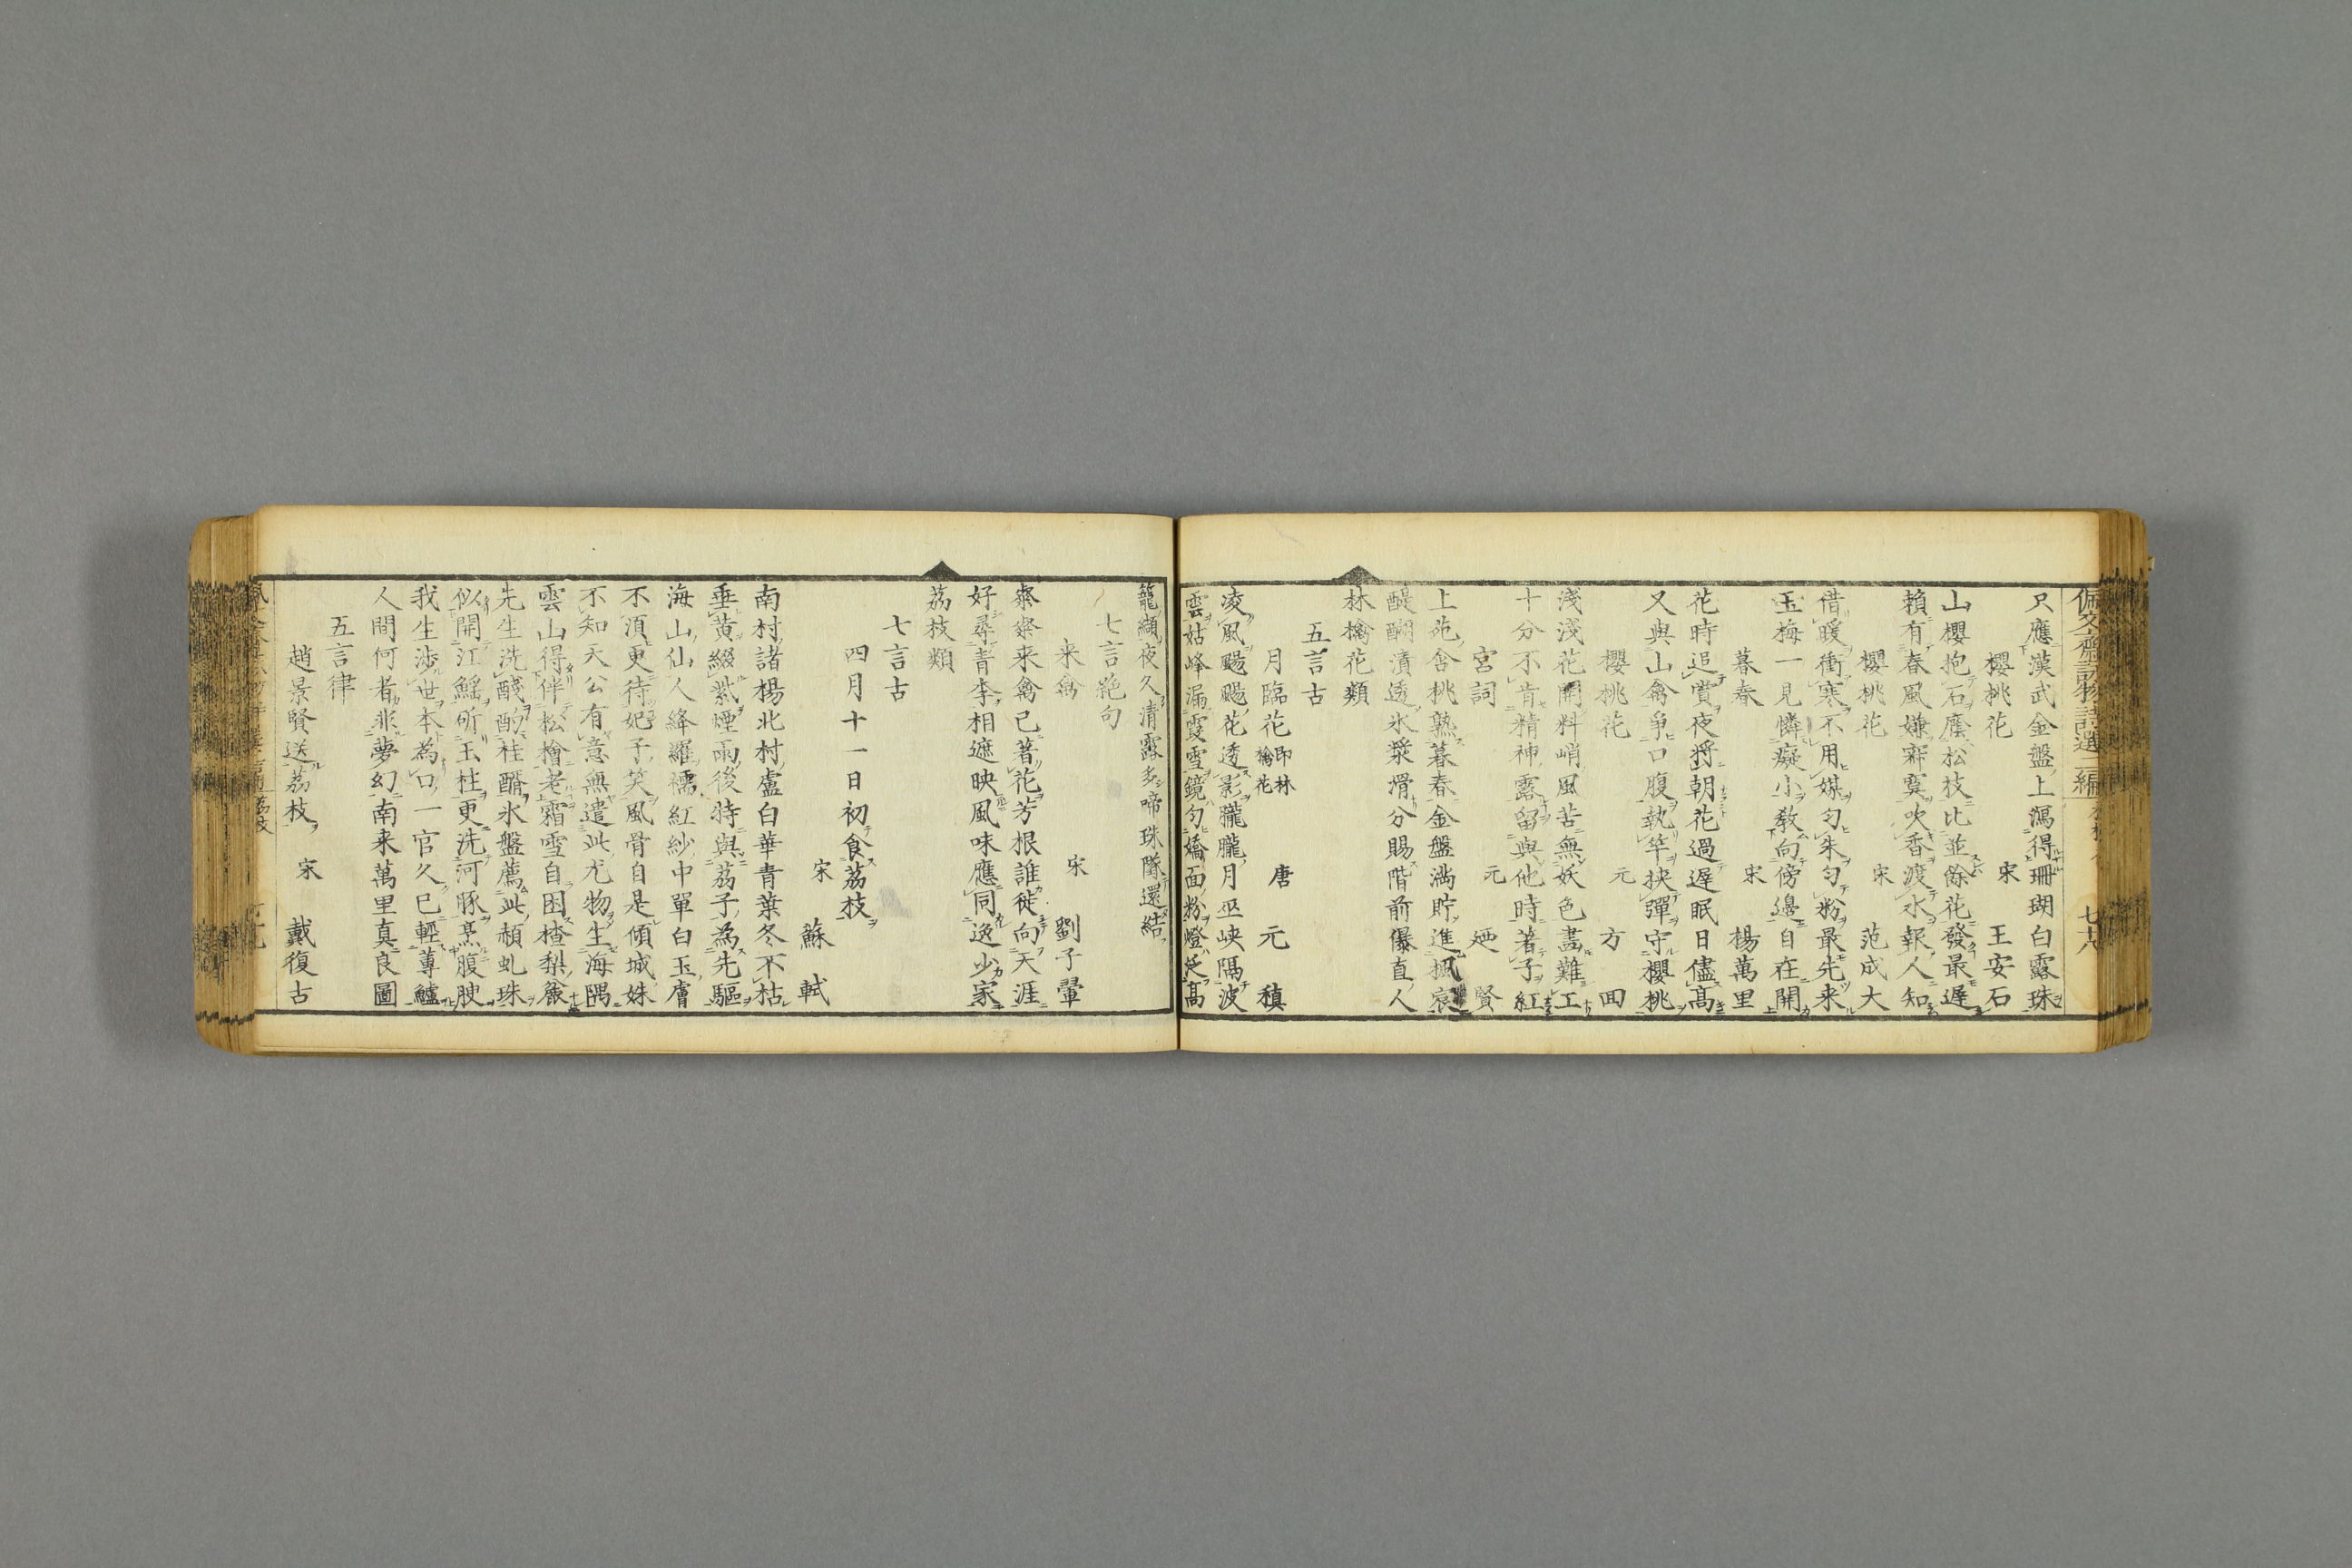 佩文齋詠物詩選二編
七十八
只應漢武金盤上瀉得珊瑚白露珠
櫻桃花 宋 王安石
山櫻抱石蔭松枝比並餘花發最遲
賴有春風嫌寂寞吹香渡水報人知
櫻桃花 宋 范成大
借暖衝寒不用媒勻朱勻粉最先来
玉梅一見憐癡小教向傍邊自在開
暮春 宋 楊萬里
花時追賞夜將朝花過遲眠日儘高
又與山禽爭口腹執竿挾彈守櫻桃
櫻桃花 元 方回
淺淺花開料峭風苦無妖色畫難工
十分不肯精神露留與他時著子紅
宮詞 元 迺賢
上苑含桃熟暮春金盤滿貯進楓宸
醍醐漬透氷漿滑分賜階前儤直人
林檎花類
五言古
月臨花 即林檎花 唐 元稹
凌風颺颺花透影朧朧月巫峽隔波
雲姑峰漏霞雪鏡勻嬌面粉燈泛高
籠纈夜久清露多啼珠墜還結
七言絶句
来禽 宋 劉子翬
粲粲来禽已著花芳根誰徙向天涯
好尋青李相遮映風味應同逸少家
荔枝類
七言古
四月十一日初食荔枝
宋 蘇軾
南村諸楊北村盧白華青葉冬不枯
垂黃綴紫煙雨後特與荔子為先驅
海山仙人絳羅襦紅紗中單白玉膚
不須更待妃子笑風骨自是傾城姝
不知天公有意無遣此尤物生海隅
雲山得伴松檜老霜雪自困楂梨麤
先生洗醆酌桂醑氷盤薦此赬虬珠
似開江鰩斫玉柱更洗河豚烹腹腴
我生涉世本為口一官久已輕蓴鱸
人間何者非夢幻南来萬里真良圖
五言律
趙景賢送荔枝 宋 戴復古